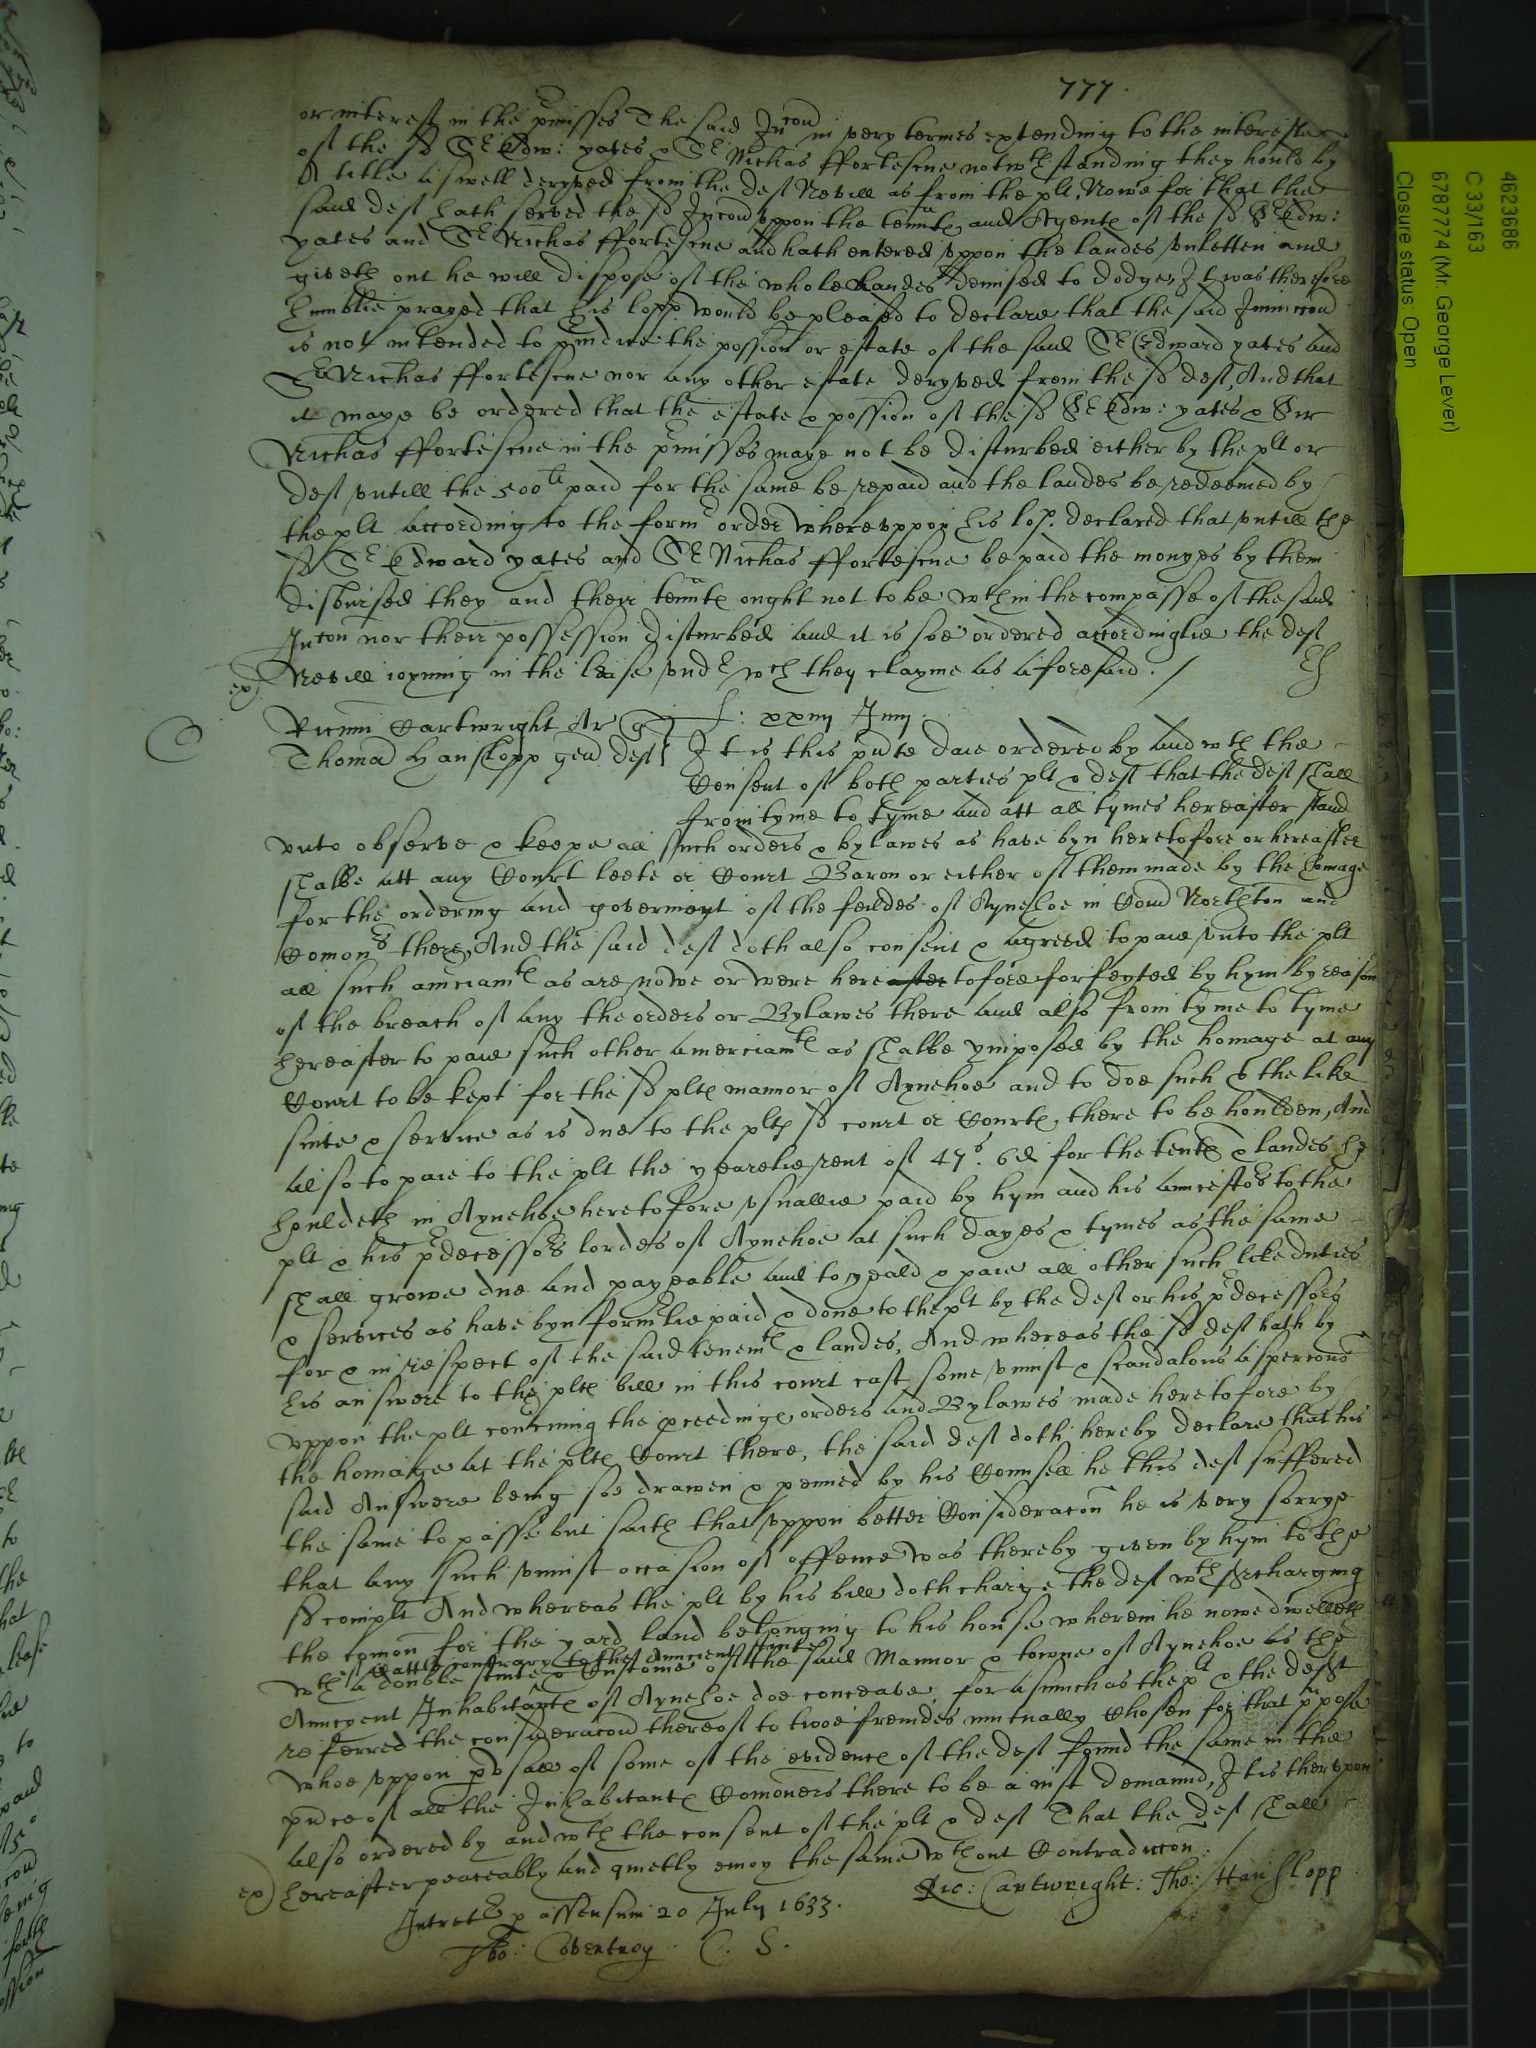 777.
or interest in the pmisses The said Incon in very termes extending to the interestes
of the sd Sr Edw: yates & Sr Nichas ffortescue notwthstanding they hould by
A title aswell deryved from the deft Nevill as from the plt, Nowe for that the
said deft hath served the sd Incon vppon the tennte and Agente of the sd Sr Edw:
yates and Sr Nichas ffortescue and hath entered vppon the landes vnletten and
giveth out he will dispose of the whole landes demised to dodge, It was therefore
humblie prayed that his lopp would be pleased to declare that the said Iniunccon
is not intended to piudice the possion or estate of the said Sr Edward yates and
Sr Nichas ffortescue nor any other estate deryved from the sd deft, And that
it maye be ordered that the estate & possion of the sd Sr Edw: yates & Sir
Nichas ffortescue in the pmisses maye not be disturbed either by the plt or
deft vntill the 500li paid for the same be repaid and the landes be redeemed by
the plt according to the form order Wherevppon his lop. declared that vntill the
sd Sr Edward yates and Sr Nichas ffortescue be paid the monyes by them
disbursed they and their tennte ought not to be wthin the compasse of the said
Incon nor their possession disturbed and it is soe ordered accordinglie the deft
ex) Nevill ioyning in the lease vnd wch they clayme as aforesaid. /
Ricum Cartwright Ar qr
Thoma Hanslopp gen deft
It is this pnte daie ordered by and wth the
Consent of both parties plt & deft that the deft shall
from tyme to tyme and att all tymes hereafter stand
vnto observe & keepe all such orders & bylawes as have byn heretofore or hereafter
shalbe att any Court leete or Court Baron or either of them made by the homage
for the ordering and goverment of the feildes of Aynehoe in Com Northton and
Comons there, And the said deft doth also consent & agreed to paie vnto the plt
all such amciamte as are nowe or were hereafter tofore forfeyted by hym by reason
of the breach of any the orders or Bylawes there and also from tyme to tyme
hereafter to paie such other amerciamte as shalbe ymposed by the homage at any
Court to be kept for the sd plte mannor of Aynehoe and to doe such & the like
suite & service as is due to the plte sd court or Courte, there to be houlden, And
also to paie to the plt the yearelie rent of 47s. 6d for the tente & landes he
houldeth in Aynehoe heretofore vsuallie paid by hym and his auncestors to the
plt & his pdecessors lordes of Aynehoe at such dayes & tymes as the same
shall growe due and payeable and to yeald & paie all other such like duties
& services as have byn formlie paid & done to the plt by the deft or his pdecessors
for & in respect of the said tenemte & landes, And whereas the sd deft hath by
his answere to the plte bill in this court cast some vniust & scandalous aspercons
vppon the plt concerning the pceedinge orders and Bylawes made heretofore by
the homage at the plte Court there, the said deft doth hereby declare that his
said Answere being soe drawen & penned by his Counsell he this deft suffered
the same to passe but saith that vppon better Consideracon he is very sorrye
that any such vniust occasion of offence was thereby given by hym to the
sd complt And whereas the plt by his bill doth charge the deft wth surcharging
the comon for the yard land belonging to his house wherein he nowe dwelleth
wth a double stinte contrary to the Auncient stinte & Custome of the said Mannor & towne of Aynehoe as the
Auncyent Inhabitante of Aynehoe doe conceave, for asmuch as the plt & the deft
referred the consideracon thereof to twoe freindes mutually Chosen for that ppose
whoe vppon pvsall of some of the evidence of the deft found the same in the
pnce of all the Inhabitante Comoners there to be a iust demannd, It is therevpon
also ordered by and wth the consent of the plt & deft That the deft shall
ex) hereafter peaceably and quietly enioy the same wthout Contradiccon.
Ric: Cartwright: Tho: Hanslopp
Intretr p assensum 20 July 1633.
Tho: Coventrey. C. S.
4623686
C 33/163
6787774 (Mr. George Lever)
Closure status: Open